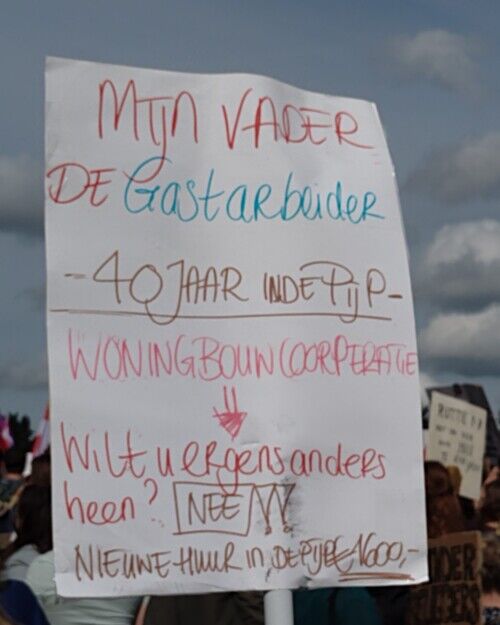 MIJN VADER
DE Gastarbeider
- 40 JAAR IN DE PIJP -
WONINGBOUWCOORPERATIE
Wilt u ergens anders
heen? NEE!!!
NIEUWE HUUR in DE PIJP € 1600,-
RUTTE